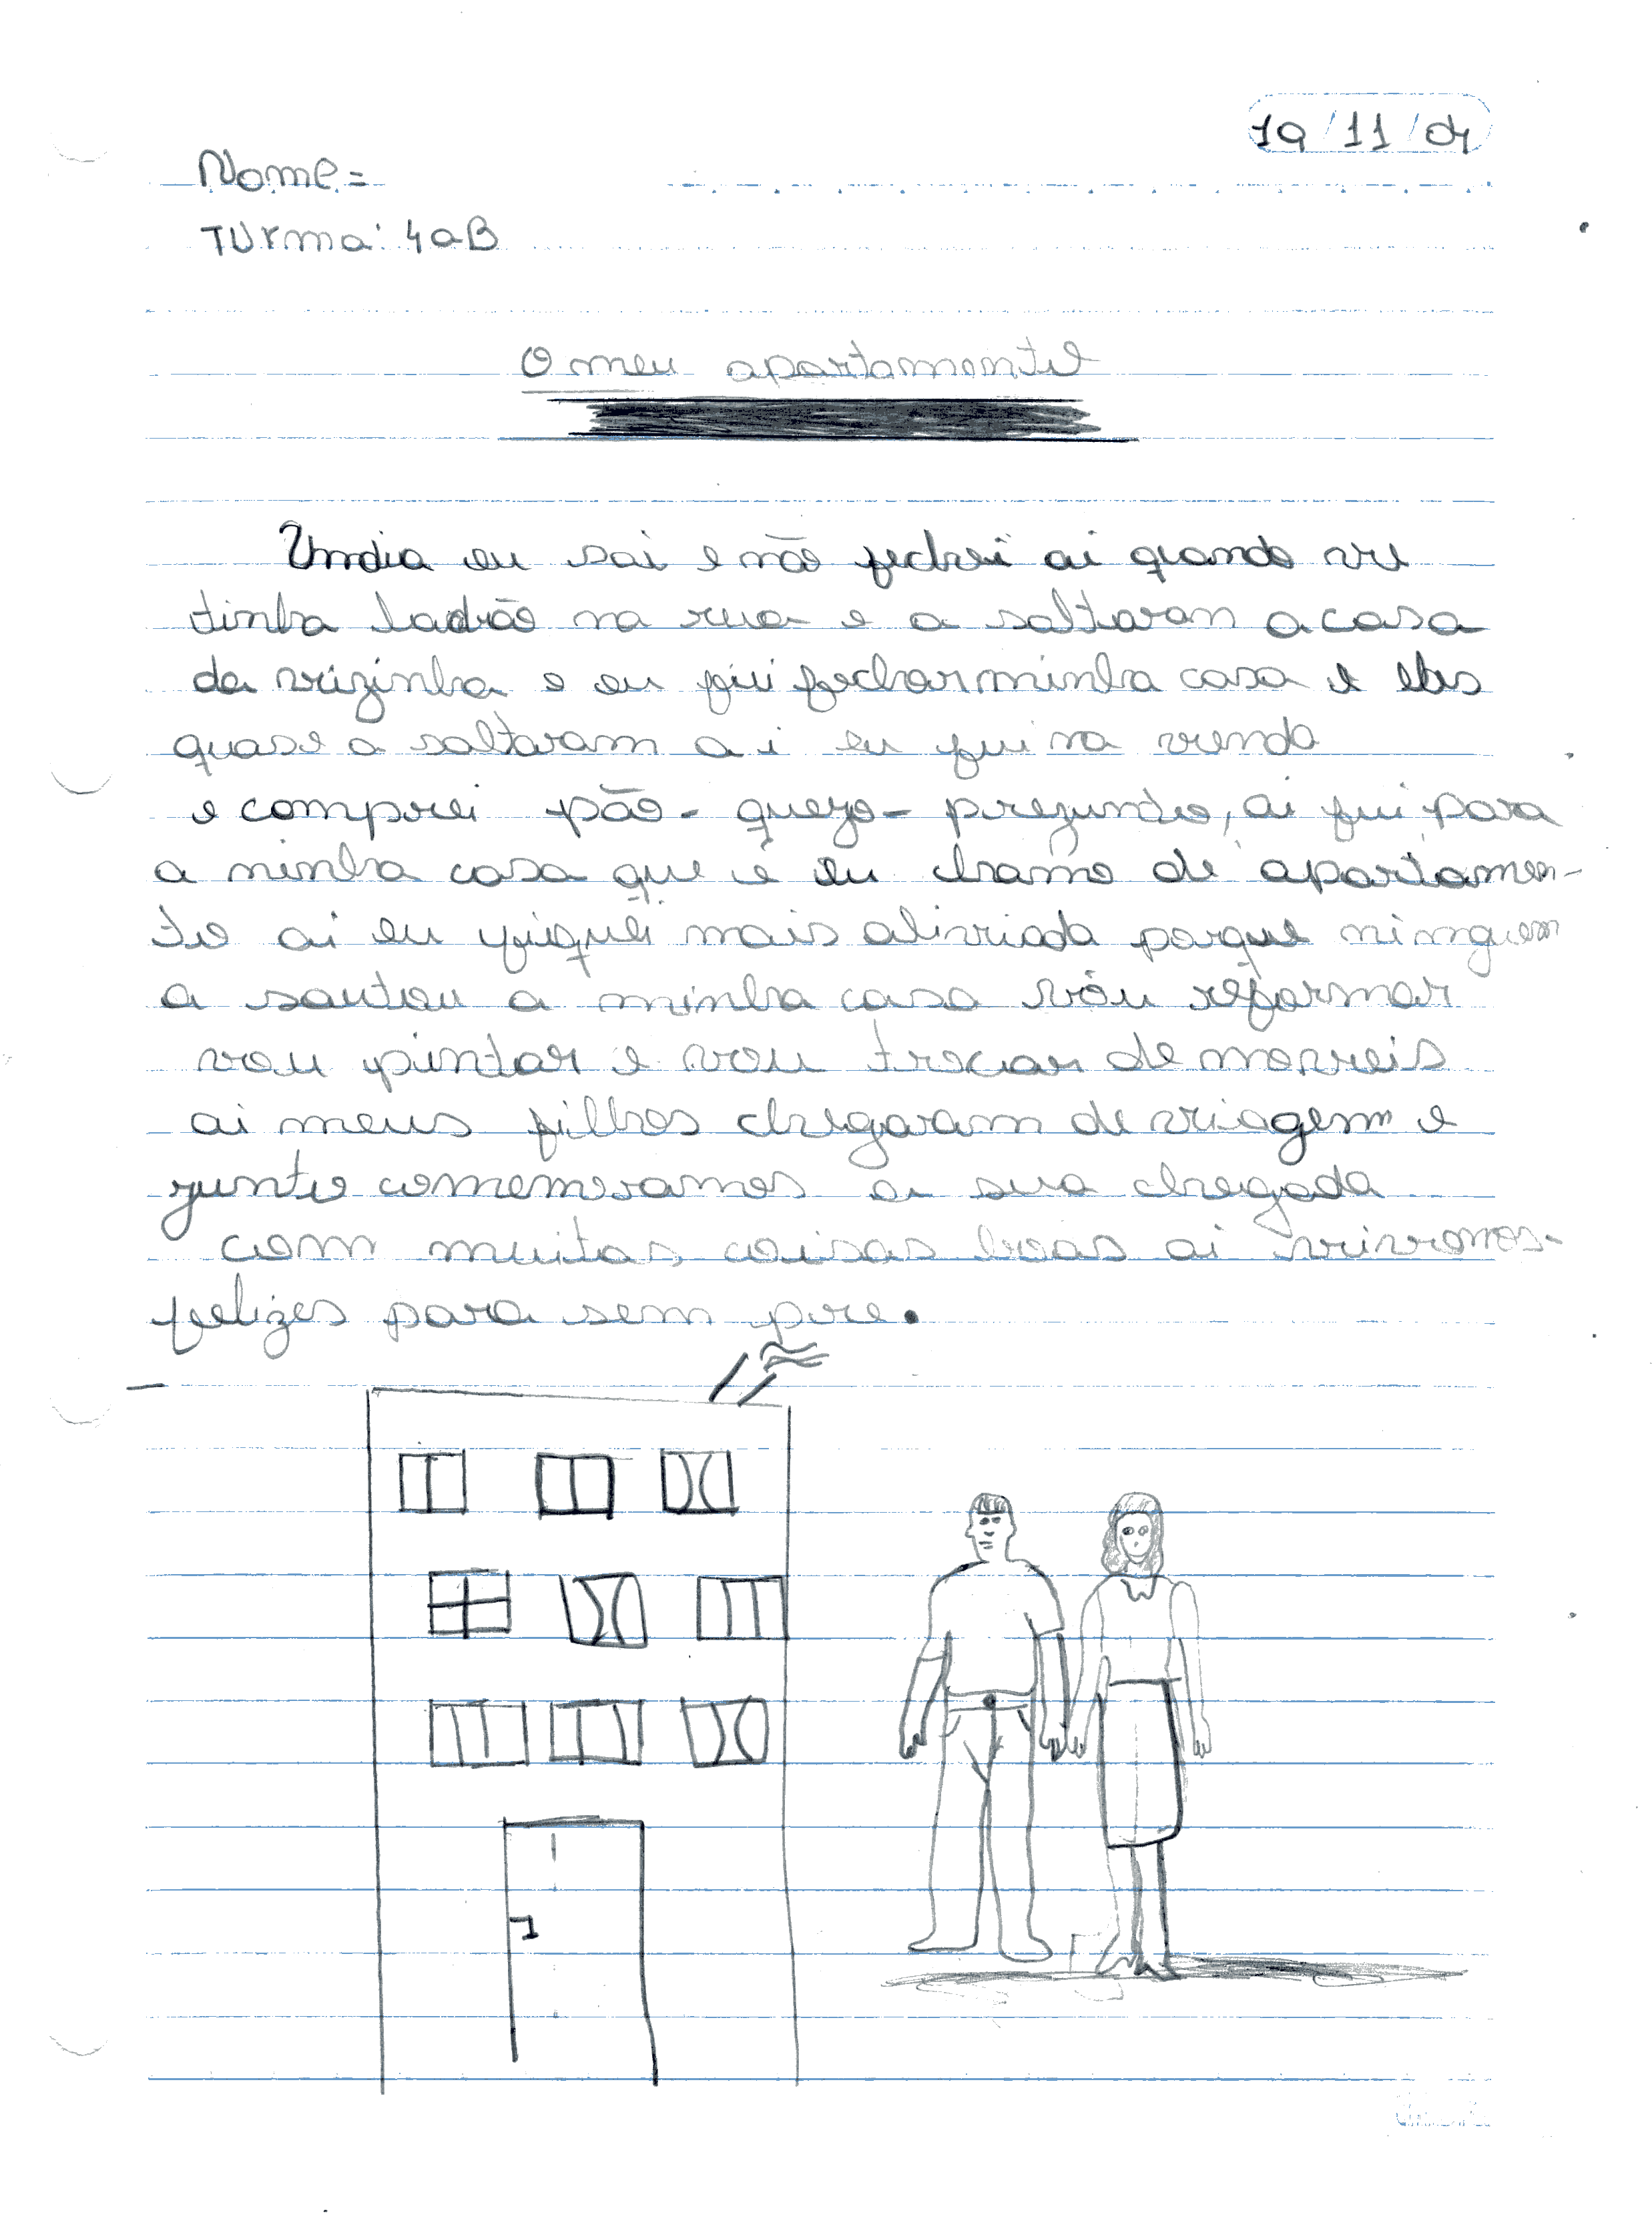 19/11/04
Nome=
Turma: 4aB
O meu apartamento
Umdia eu sai e não fechei ai quando vi
tinha ladrão na rua e a saltaran acasa
da vizinha e eu fui fecharminha casa e eles
quase a saltaram a i eu fui na venda
e comprei pão - quejo - prezunto, ai fui para
a minha casa que é eu chamo de apartamen-
to ai eu fiquei mais aliviada porque nimguem
a sautou a minha casa vou reformar
vou pintar e vou trocar de moveis
ai meus filhos chegaram de viagem e
junto comemoramos a sua chegada
com muitas coisas boas ai vivemos
felizes para sem pre.